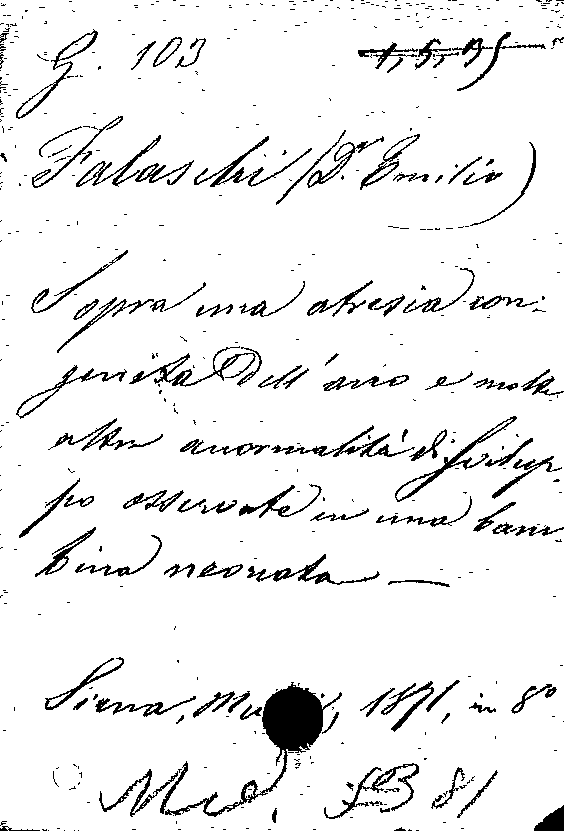 G. 103 1,5,95
Falaschi (Dr. Emilio)
Sopra una atresia con-
genita dell'ano e molte
altre anormalità di svilup-
po osservate in una bam-
bina neonata —
Siena, 1871, in 8º
Med. 81